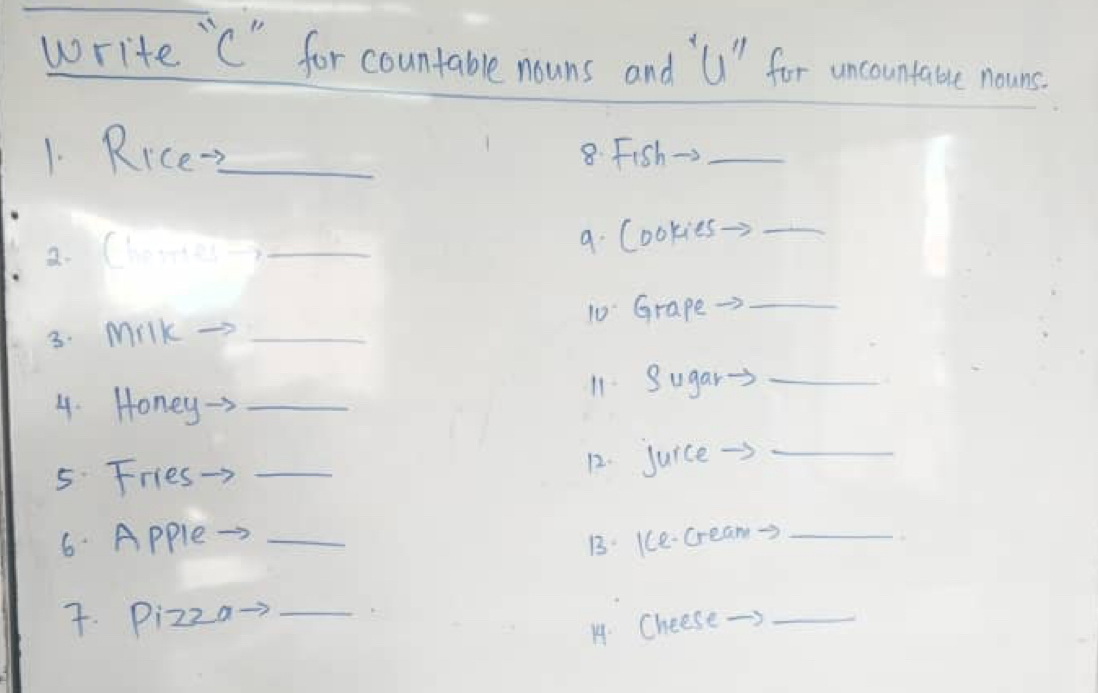 Write "C" for countable nouns and "U" for uncountable nouns.
1. Rice→
2. Cherries→
3. Milk →
4. Honey→
5. Fries→
6. Apple→
7. Pizza→
8. Fish→
9. Cookies→
10. Grape→
11. Sugar→
12. juice→
13. Ice-cream→
14. Cheese→